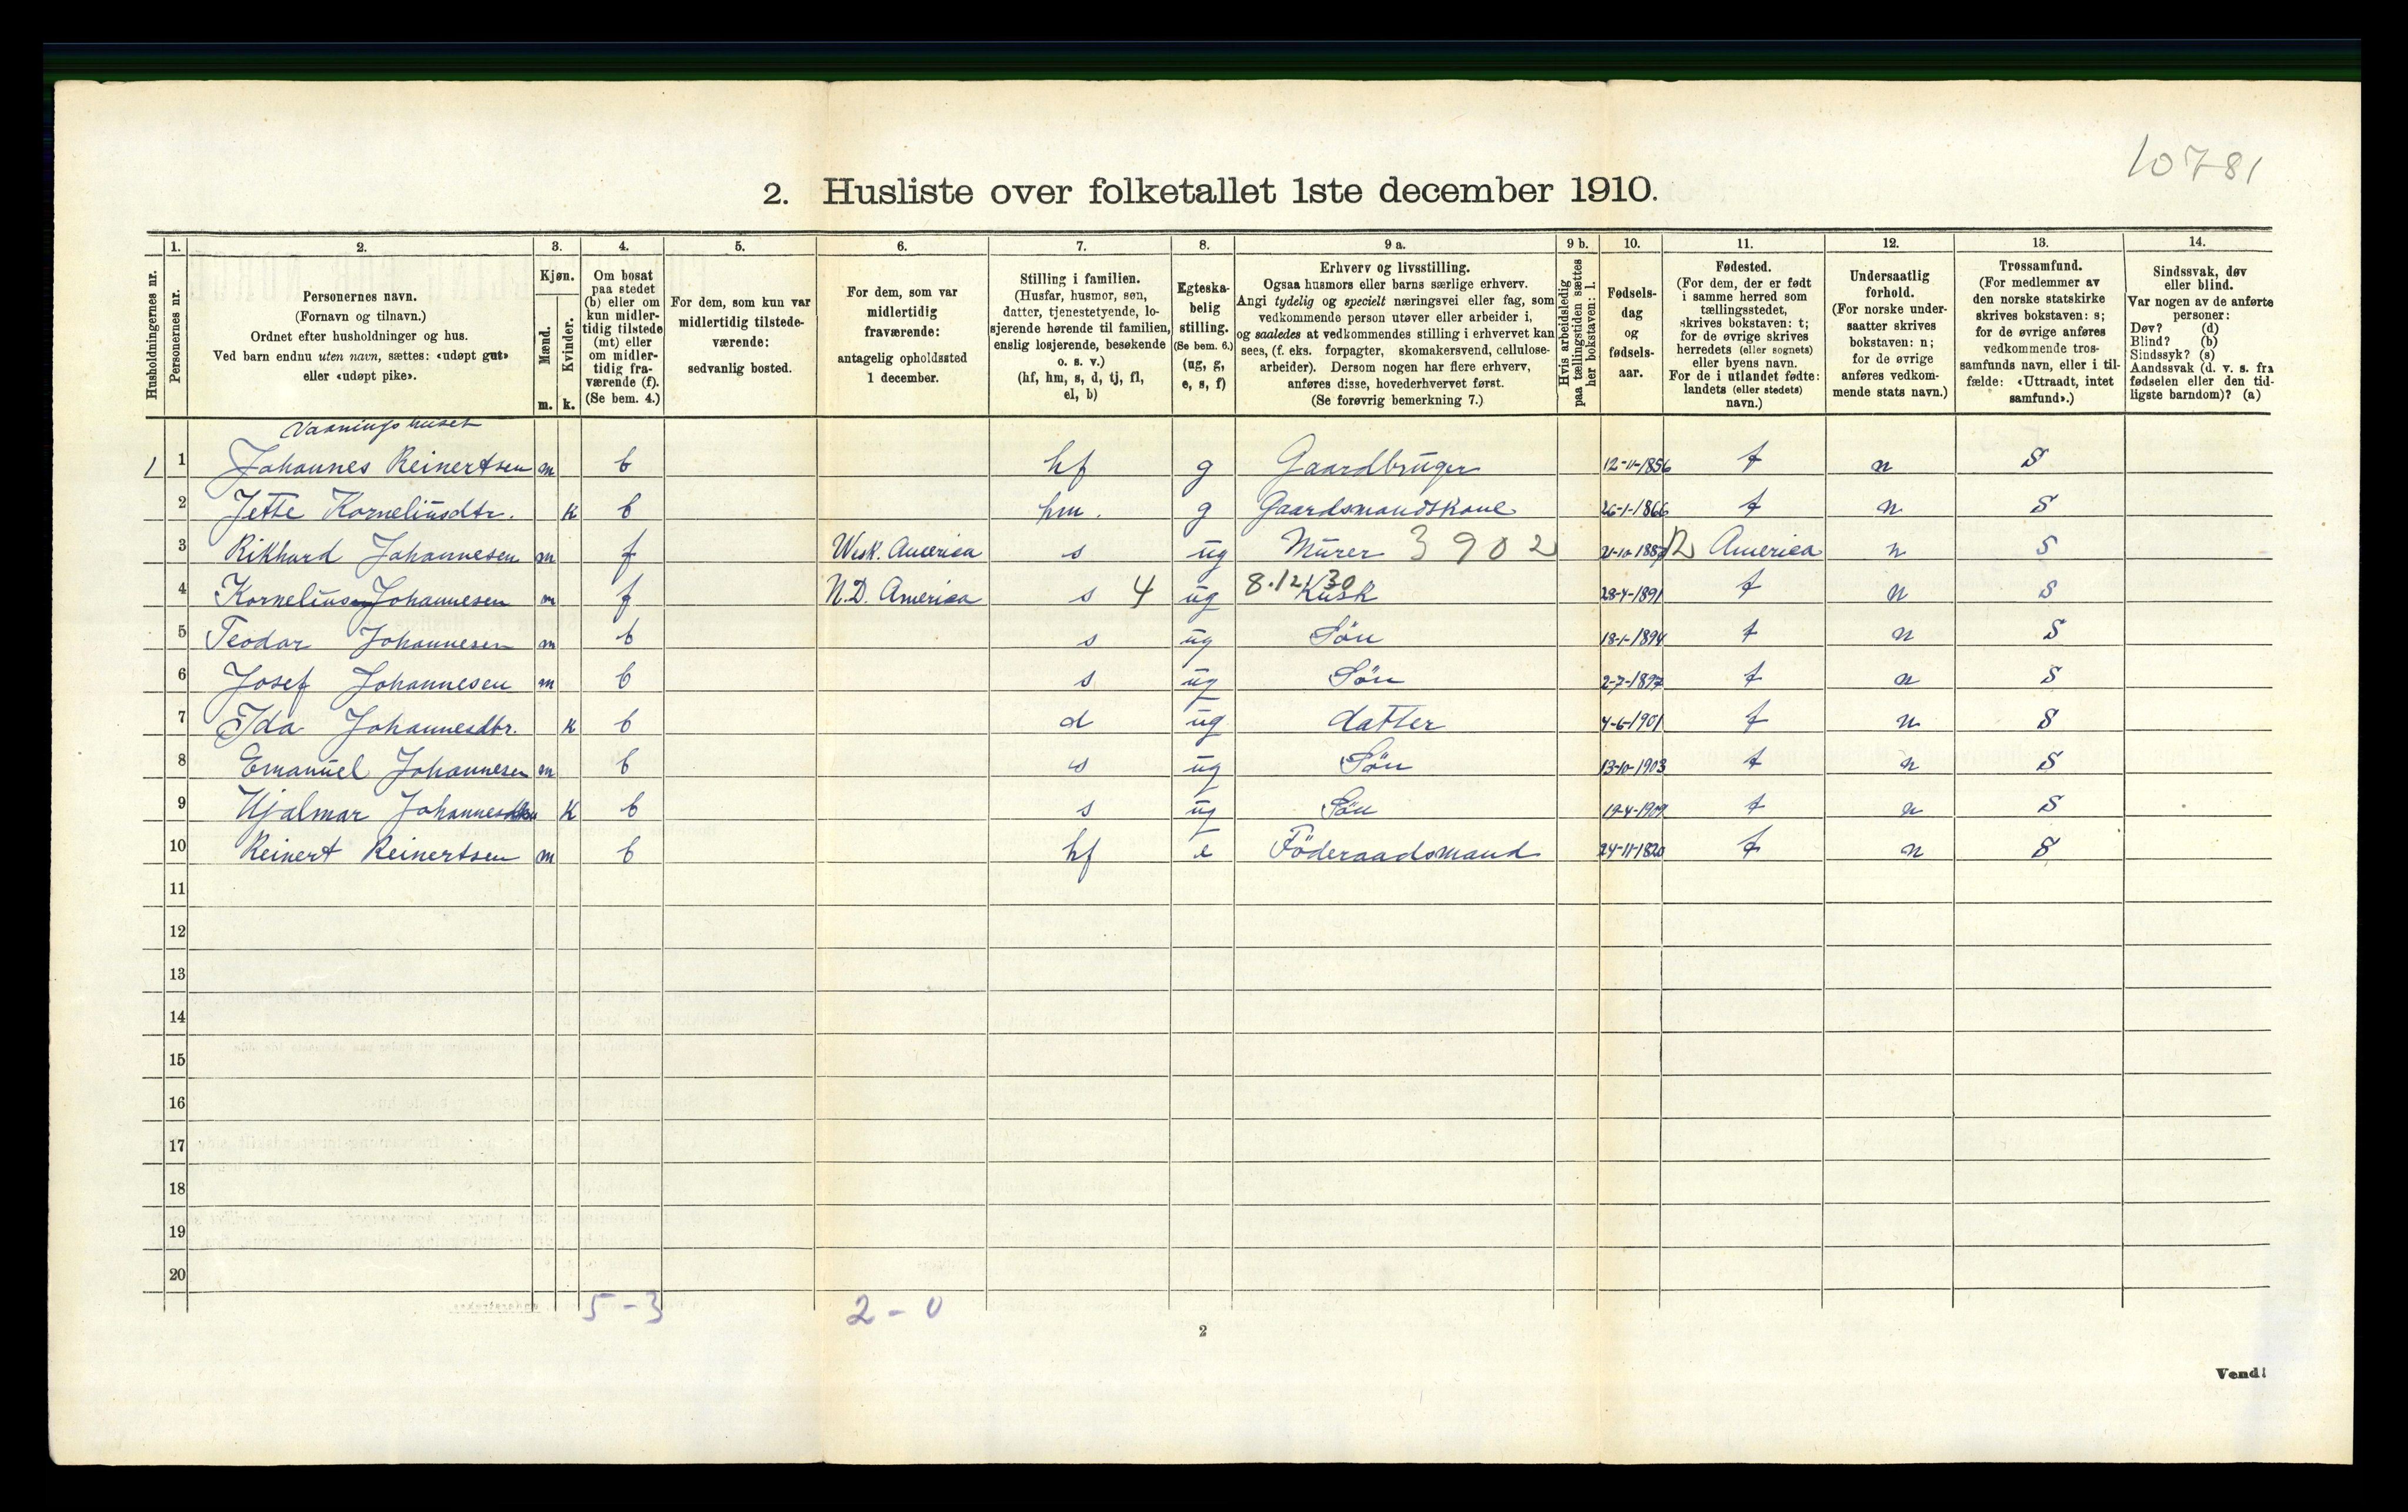 10781
2. Husliste over folketallet 1ste december 1910.
1. 2. 3. 4. 5. 6. 7. 8. 9 a. 9 b. 10. 11. 12. 13. 14.
Husholdningernes nr.
Personernes nr.
Personernes navn.
(Fornavn og tilnavn.)
Ordnet efter husholdninger og hus.
Ved barn endnu uten navn, sættes: «udøpt gut»
eller «udøpt pike».
Kjøn.
Mænd.
Kvinder.
m. k.
Om bosat
paa stedet
(b) eller om
kun midler-
tidig tilstede
(mt) eller
om midler-
tidig fra-
værende (f).
(Se bem. 4.)
For dem, som kun var
midlertidig tilstede-
værende:
sedvanlig bosted.
For dem, som var
midlertidig
fraværende:
antagelig opholdssted
1 december.
Stilling i familien.
(Husfar, husmor, søn,
datter, tjenestetyende, lo-
sjerende hørende til familien,
enslig losjerende, besøkende
o. s. v.)
(hf, hm, s, d, tj, fl,
el, b)
Egteska-
belig
stilling.
(Se bem. 6.)
(ug, g,
e, s, f)
Erhverv og livsstilling.
Ogsaa husmors eller barns særlige erhverv.
Angi tydelig og specielt næringsvei eller fag, som
vedkommende person utøver eller arbeider i,
og saaledes at vedkommendes stilling i erhvervet kan
sees, (f. eks. forpagter, skomakersvend, cellulose-
arbeider). Dersom nogen har flere erhverv,
anføres disse, hovederhvervet først.
(Se forøvrig bemerkning 7.)
Hvis arbeidsledig
paa tællingstiden sættes
her bokstaven: l.
Fødsels-
dag
og
fødsels-
aar.
Fødested.
(For dem, der er født
i samme herred som
tællingsstedet,
skrives bokstaven: t;
for de øvrige skrives
herredets (eller sognets)
eller byens navn.
For de i utlandet fødte:
landets (eller stedets)
navn.)
Undersaatlig
forhold.
(For norske under-
saatter skrives
bokstaven: n;
for de øvrige
anføres vedkom-
mende stats navn.)
Trossamfund.
(For medlemmer av
den norske statskirke
skrives bokstaven: s;
for de øvrige anføres
vedkommende tros-
samfunds navn, eller i til-
fælde: «Uttraadt, intet
samfund».)
Sindssvak, døv
eller blind.
Var nogen av de anførte
personer:
Døv? (d)
Blind? (b)
Sindssyk? (s)
Aandssvak (d. v. s. fra
fødselen eller den tid-
ligste barndom)? (a)
Vaaningshuset
1 1 Johannes Reinertsen m b hf g Gaardbruger 12-11-1856 t n S
2 Jette Korneliusdtr. k b hm. g Gaardsmandskone 26-1-1866 t n S
3 Rikhard Johannesen m f Wisk. America s ug Murer 3902 America n S
4 Kornelius Johannesen m f N.D. America s 4 ug 8.12 1/30 Kusk 28-4-1891 t n S
5 Teodor Johannesen m b s ug Sön 18-1-1894 t n S
6 Josef Johannesen m b s ug Sön 2-7-1897 t n S
7 Ida Johannesdtr. k b d ug datter 4-6-1901 t n S
8 Emanuel Johannesen m b s ug Sön 13-10-1903 t n S
9 Hjalmar k b s ug Sön 19-4-1909 t n S
10 Reinert Reinertsen m b hf e Föderaadsmand 24-11-1820 t n S
11
12
13
14
15
16
17
18
19
20
5-3 2-0
2
Vend!